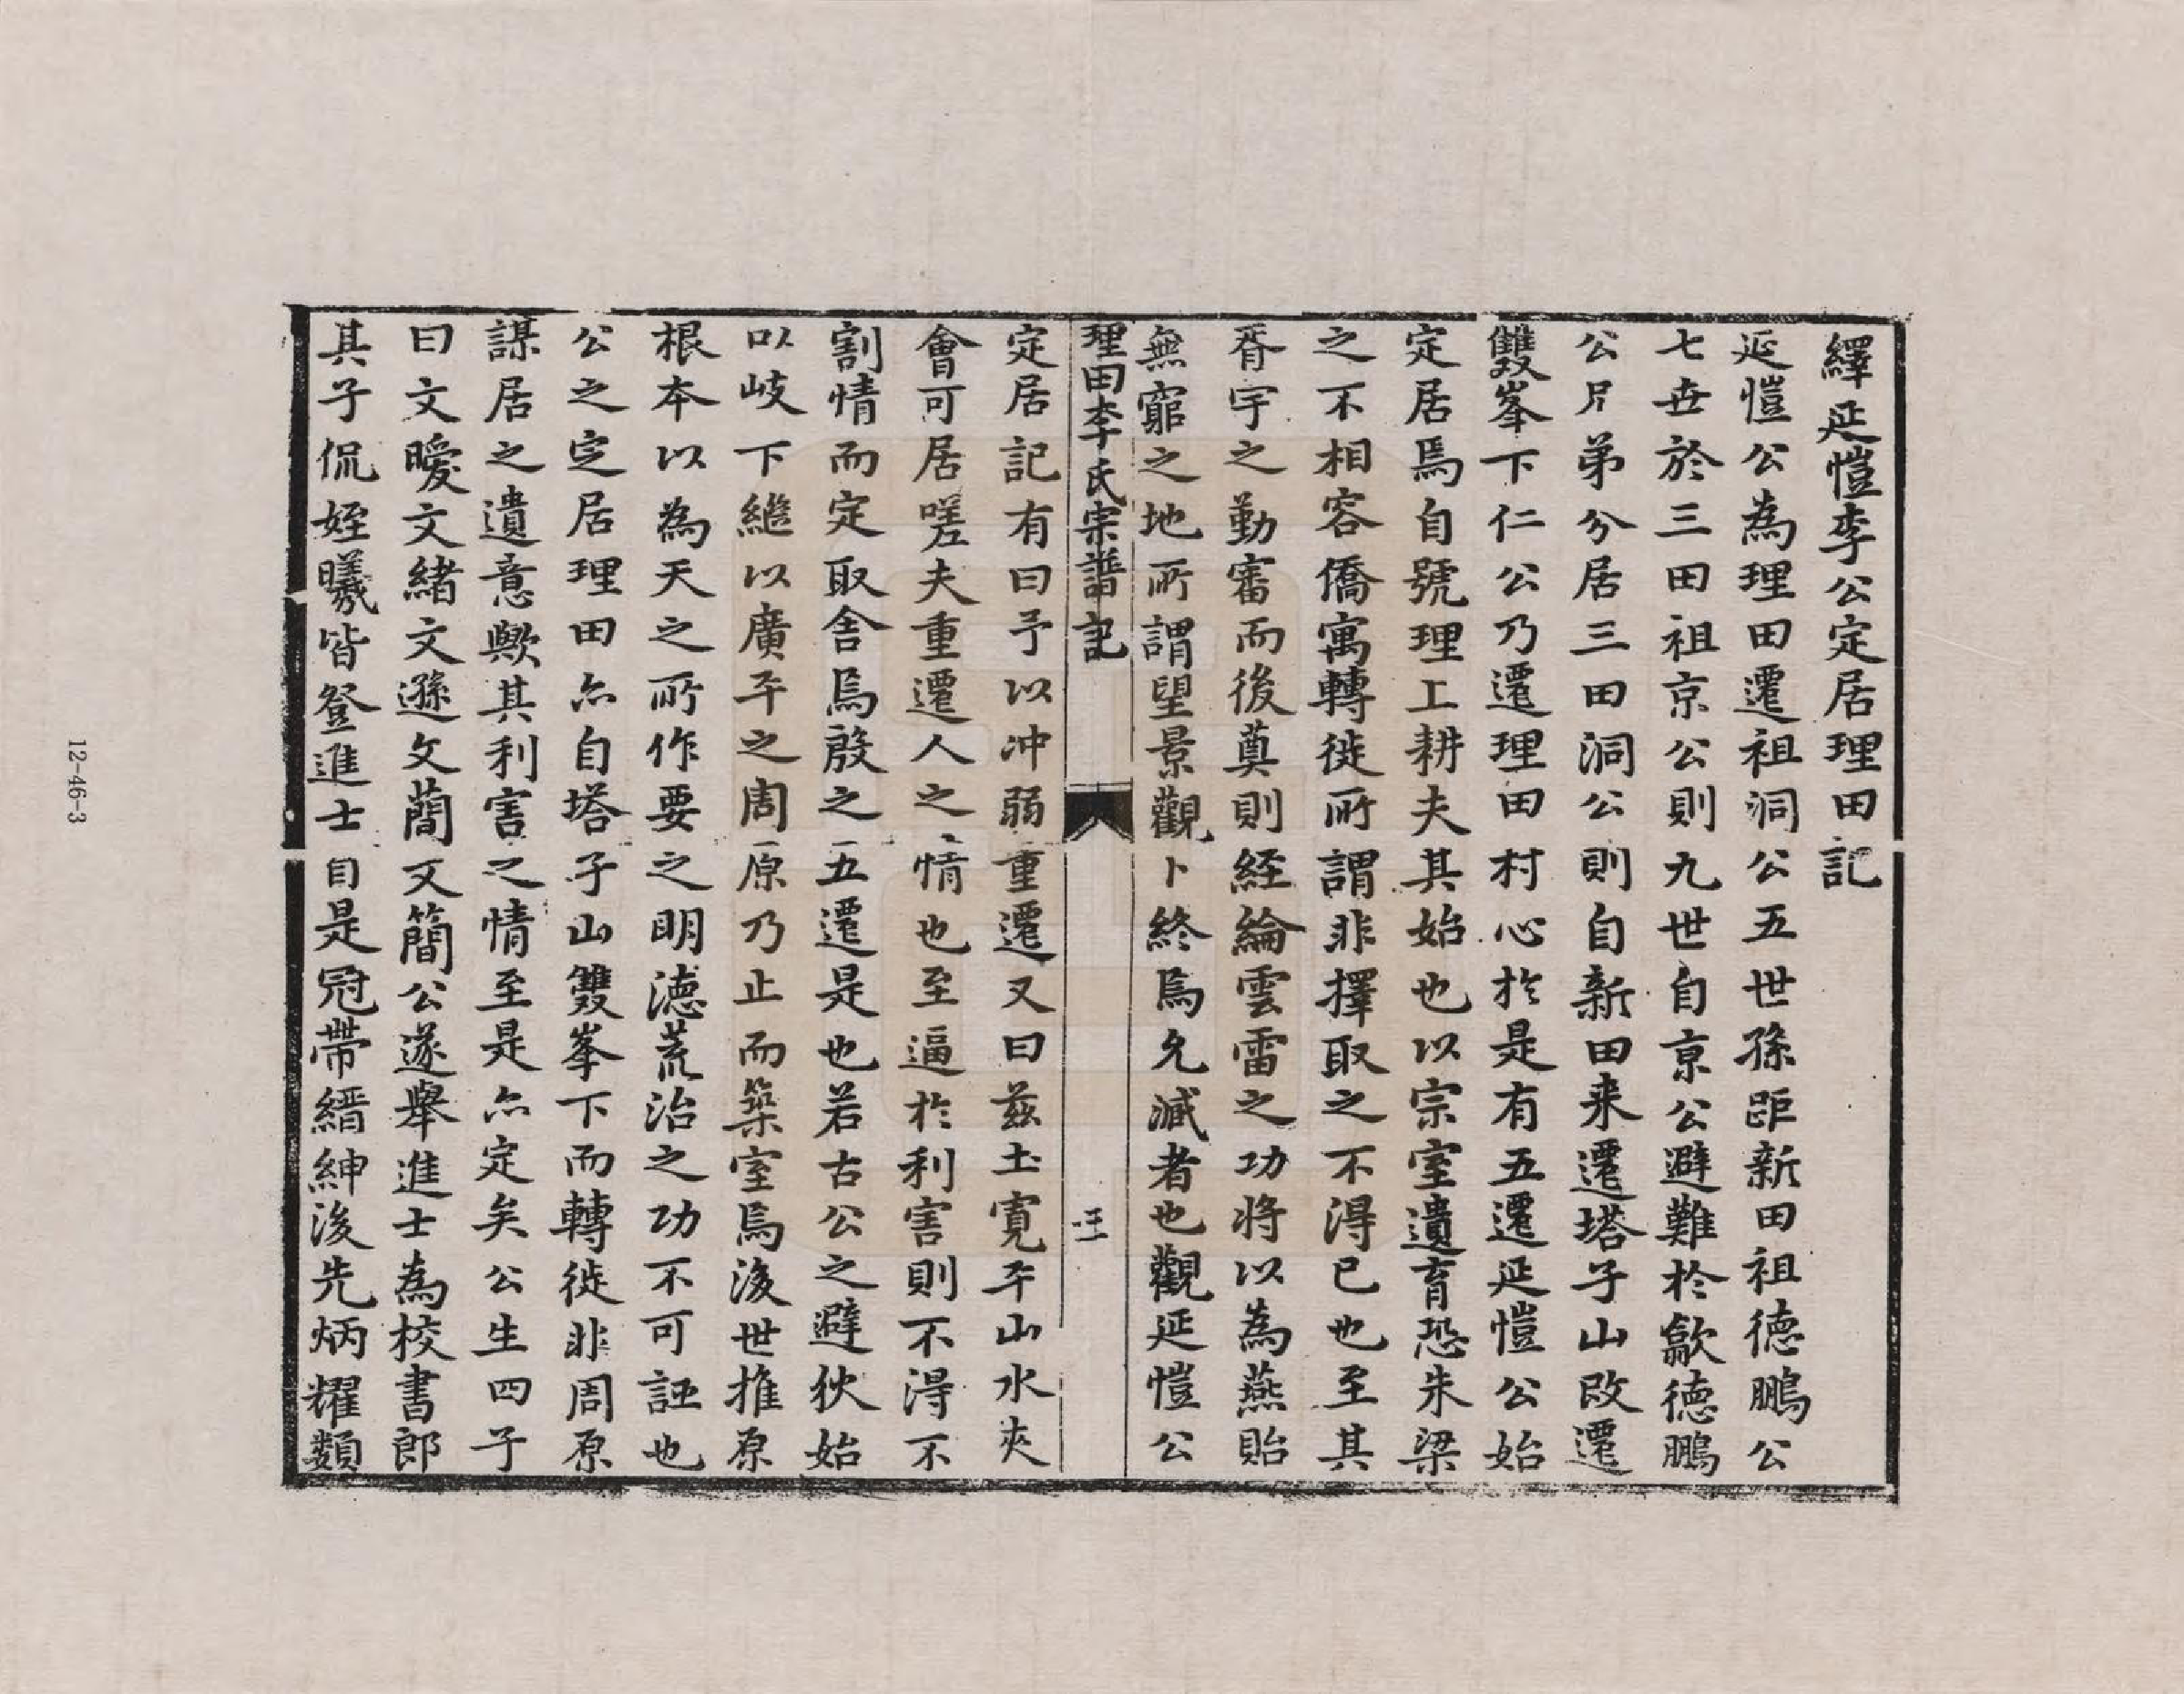 繹延愷李公定居理田記
延愷公為理田遷祖洞公五世孫距新田祖德鵬公
七世於三田祖京公則九世自京公避難於歙德鵬
公昆弟分居三田洞公則自新田来遷塔子山改遷
雙峯下仁公乃遷理田村心於是有五遷延愷公始
定居焉自號理工耕夫其始也以宗室遺育恐朱梁
之不相容僑寓轉徙所謂非擇取之不得已也至其
胥宇之勤審而後奠則經綸雲雷之功將以為燕貽
無窮之地所謂望景觀卜終焉允臧者也觀延愷公
理田李氏宗譜記
三
定居記有曰予以冲弱重遷又曰茲土寬平山水夾
會可居嗟夫重遷人之情也至逼於利害則不得不
割情而定取舍焉殷之五遷是也若古公之避狄始
以岐下繼以廣平之周原乃止而築室焉後世推原
根本以為天之所作要之明德荒治之功不可誣也
公之定居理田亦自塔子山雙峯下而轉徙非周原
謀居之遺意歟其利害之情至是亦定矣公生四子
曰文曖文緒文遜文藺文簡公遂舉進士為校書郎
其子侃姪曦皆登進士自是冠帶縉紳後先炳耀類
12-46-3